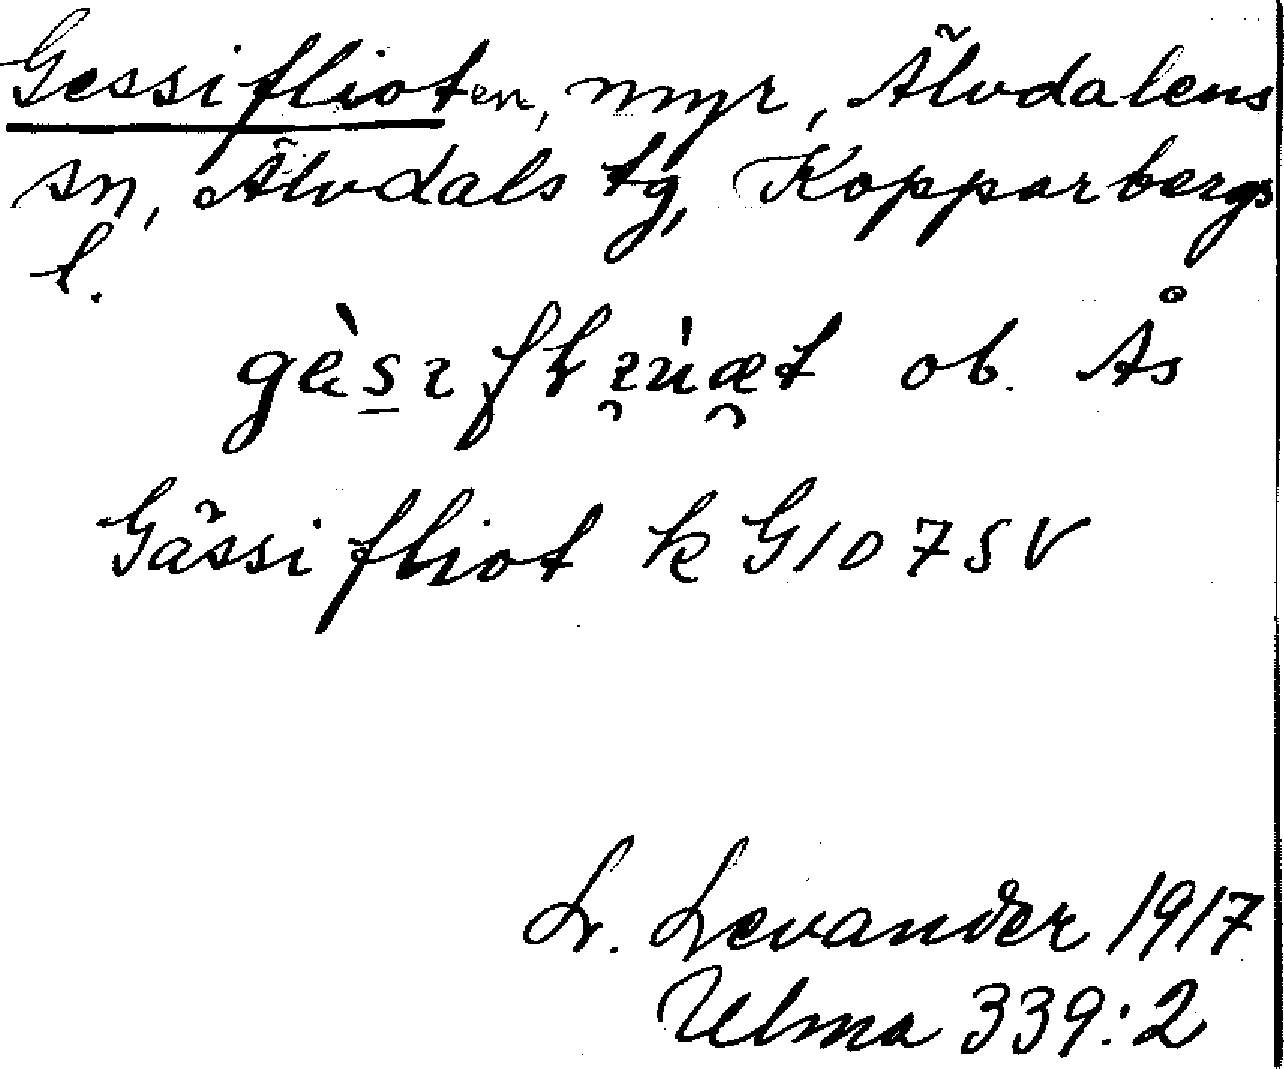 Gessiflioten, myr, Älvdalens
sn, Älvdals tg, Kopparbergs
l.
ob. Ås
Gässifliot k G107SV
L. Levander 1917
Ulma 339:2